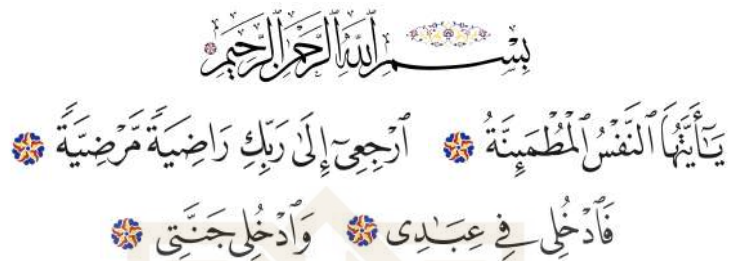 بِسْمِ ٱللَّهِ ٱلرَّحْمَٰنِ ٱلرَّحِيمِ
يَٰٓأَيَّتُهَا ٱلنَّفْسُ ٱلْمُطْمَئِنَّةُ ٱرْجِعِىٓ إِلَىٰ رَبِّكِ رَاضِيَةً مَّرْضِيَّةً
فَٱدْخُلِى فِى عِبَٰدِى وَٱدْخُلِى جَنَّتِى